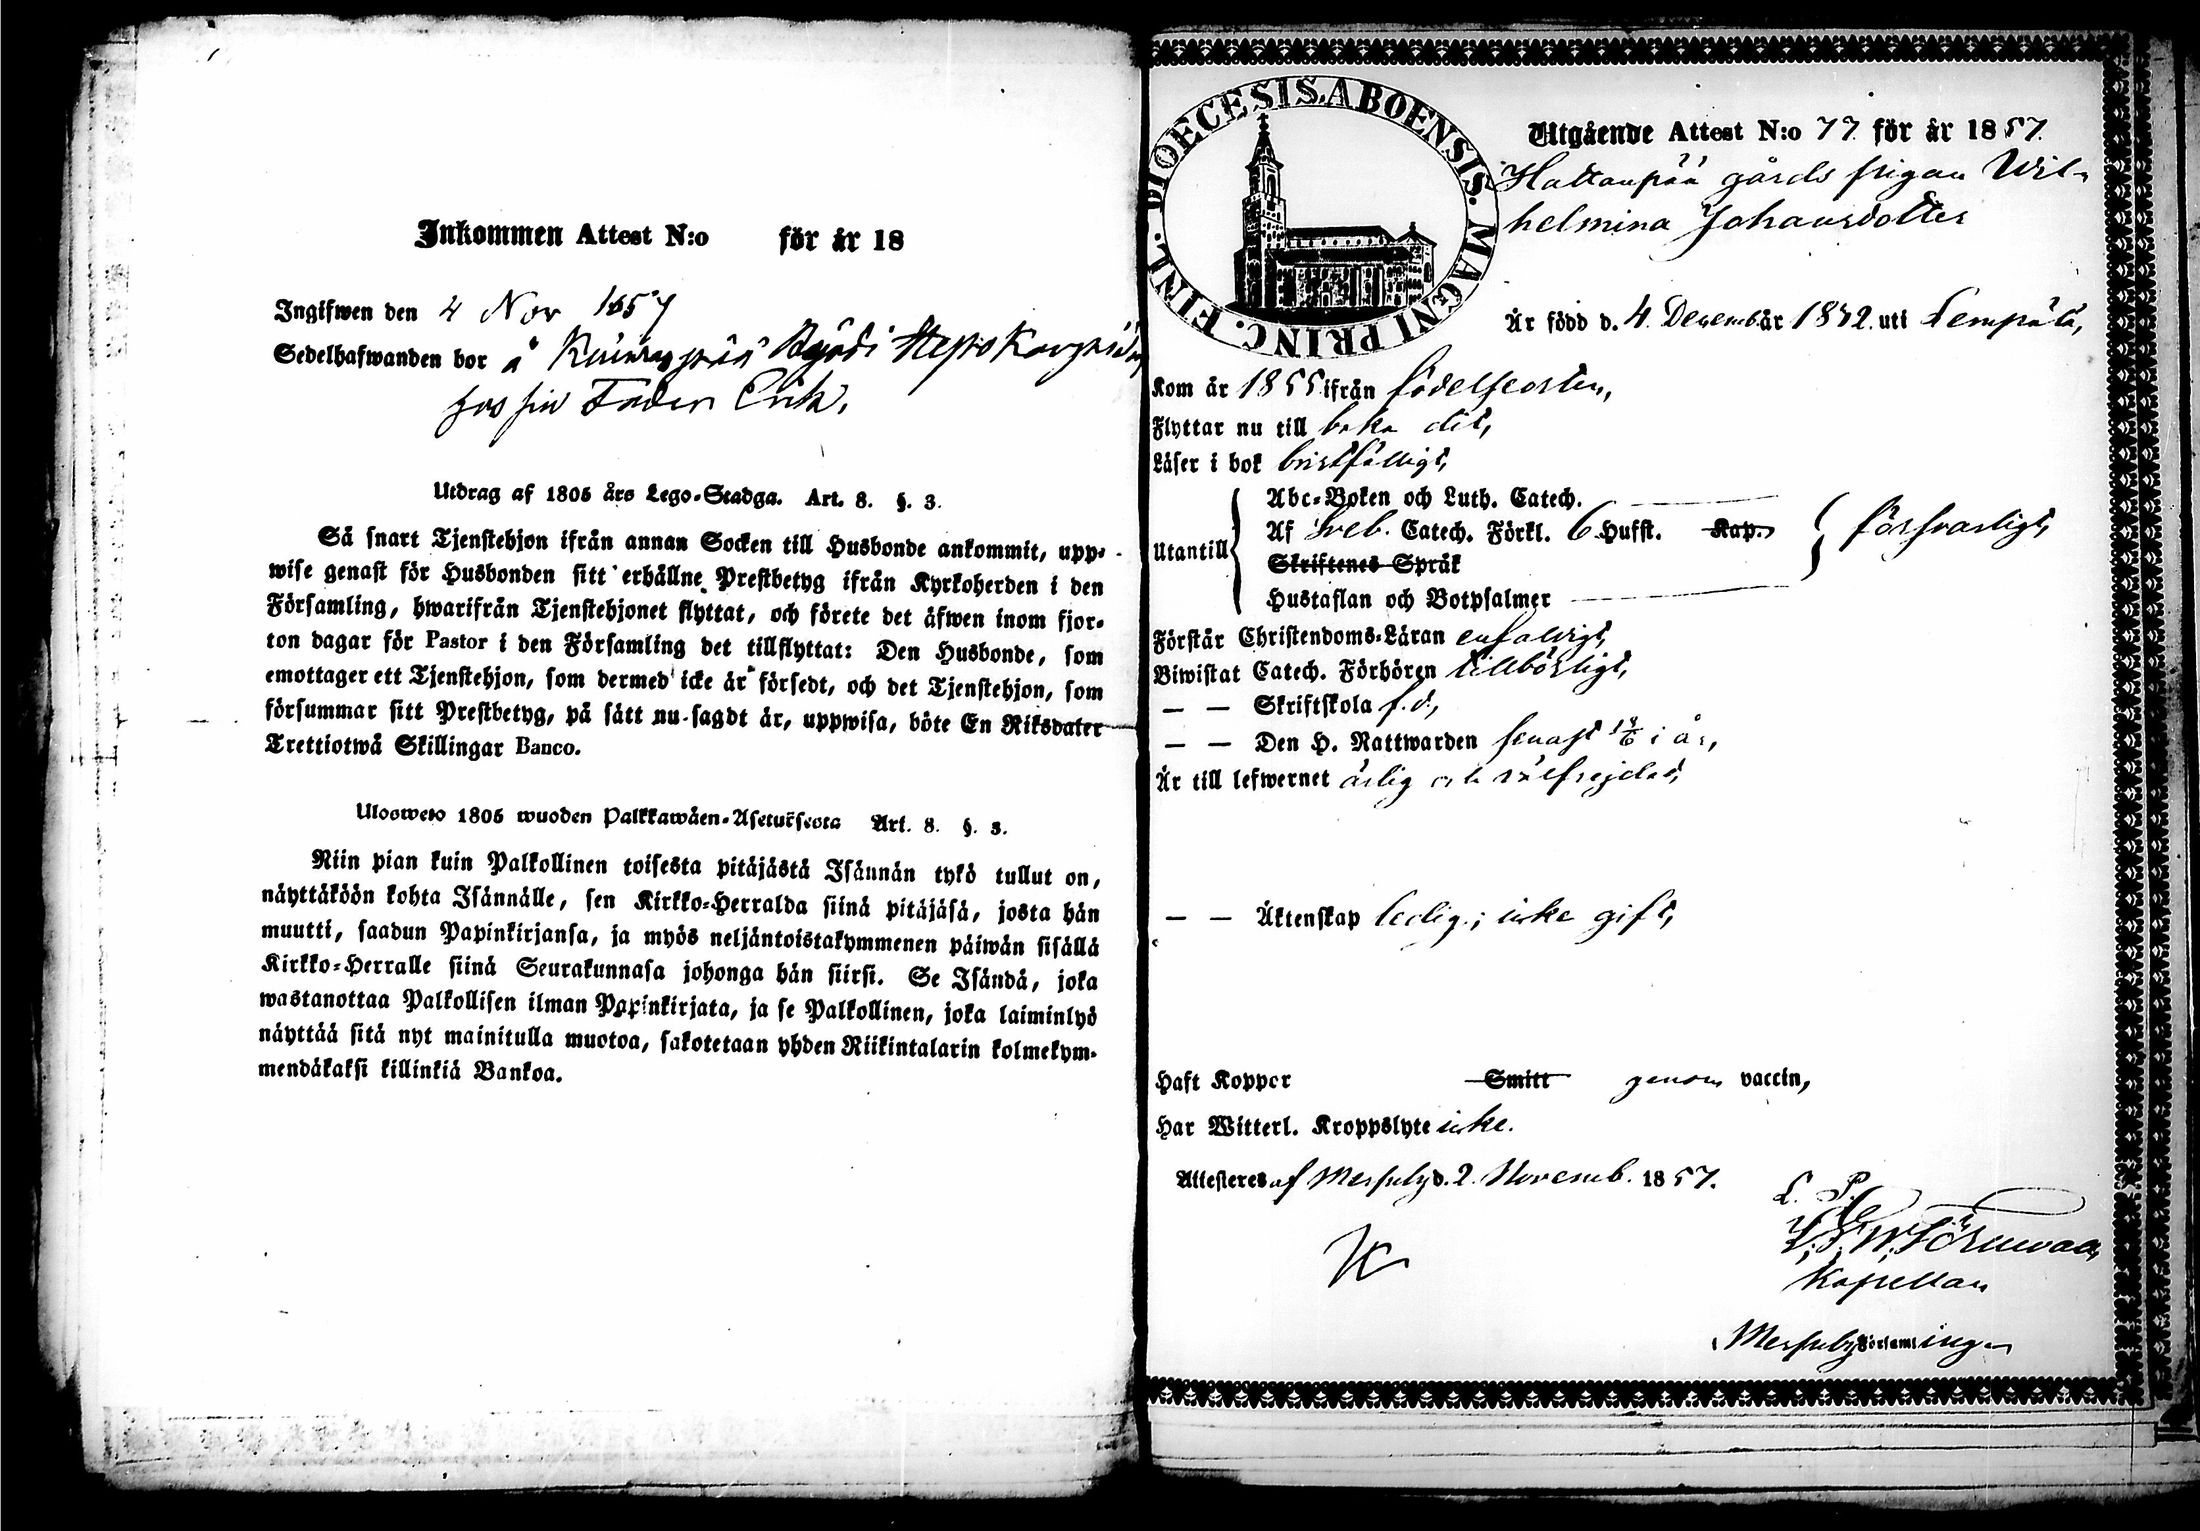 Inkommen Attest N:o för år 18
Ingifwen den 4 Nov 1857
Sedelhafwanden bor å
hos sin Fader Erik,
Utdrag af 1805 års Lego-Stadga. Art. 8. §. 3.
Så snart Tjenstehjon ifrån annan Socken till Husbonde ankommit, upp-
wise genast för Husbonden sitt erhållne Prestbetyg ifrån Kyrkoherden i den
Församling, hwarifrån Tjenstehjonet flyttat, och förete det äfwen inom fjor-
ton dagar för Pastor i den Församling det tillflyttat: Den Husbonde, som
emottager ett Tjenstehjon, som dermed icke är försedt, och det Tjenstehjon, som
försummar sitt Prestbetyg, på sätt nu sagdt är, uppwisa, böte En Riksdaler
Trettiotwå Skillingar Banco.
Ulosweto 1805 wuoden Palkkawäen-Asetuksesta Art. 8. §. 3.
Niin pian kuin Palkollinen toisesta pitäjästä Isännän tykö tullut on,
näyttäköön kohta Isännälle, sen Kirkko-Herralda siinä pitäjäsä, josta hän
muutti, saadun Papinkirjansa, ja myös neljäntoistakymmenen päiwän sisällä
Kirkko-Herralle siinä Seurakunnasa johonga hän siirsi. Se Isändä, joka
wastanottaa Palkollisen ilman Papinkirjata, ja se Palkollinen, joka laiminlyö
näyttää sitä nyt mainitulla muotoa, sakotetaan yhden Riikintalarin kolmekym-
mendäkaksi killinkiä Bankoa.
DIOECESIS ABOENSIS. MAGNI PRINC. FINL.
Utgående Attest N:o 77. för år 1857.
Hattanpää gårds pigan Wil-
helmina Johansdotter
Är född d. 4. Decemb är 1832. uti Lempälä,
Kom år 1855 ifrån födelseorten,
Flyttar nu till baka dit,
Läser i bok bristfälligt,
Utantill
Abc-Boken och Luth. Catech.
Af Sveb. Catech. Förkl. 6 Hufst. Kap. försvarligt,
Skriftenes Språk
Hustaflan och Botpsalmer
Förstår Christendoms-Läran enfaldigt,
Biwistat Catech. Förhören tillbörligt,
— — Skriftskola f. d.,
— — Den H. Nattwarden senast 14/6 i år,
Är till lefwernet ärlig och välfrejdad,
— — Äktenskap ledig; icke gift,
Haft Koppor Smitt genom vaccin,
Har Witterl. Kroppslyte icke.
Attesteres af Messuby d. 2. Novemb. 1857.
Kapellan
Messuby Församlingen